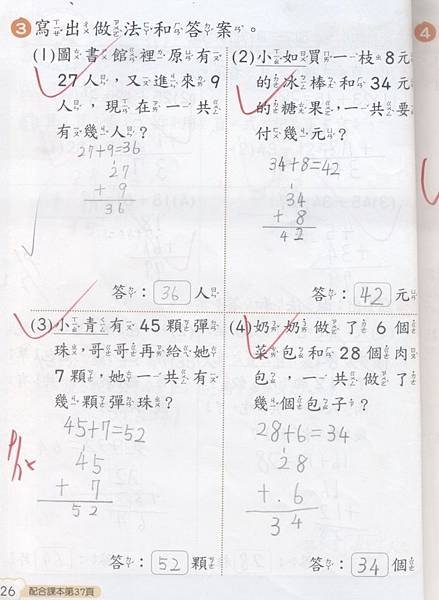 3 寫出做法和答案。
4
(1) 圖書館裡原有
27人，又進來9
人，現在一共
有幾人？
27+9=36
1
27
+ 9
36
答：36人
(2) 小如買一枝8元
的冰棒和34元
的糖果，一共要
付幾元？
34+8=42
1
34
+ 8
42
答：42元
(3) 小青有45顆彈
珠，哥哥再給她
7顆，她一共有
幾顆彈珠？
45+7=52
1
45
+ 7
52
答：52顆
(4) 奶奶做了6個
菜包和28個肉
包，一共做了
幾個包子？
28+6=34
1
28
+ 6
34
答：34個
26 配合課本第37頁